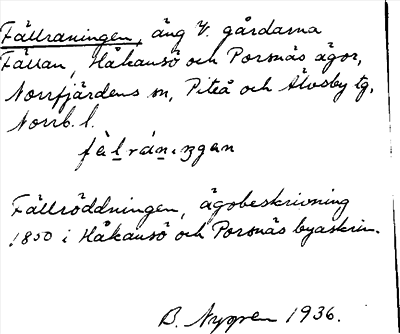 Fällraningen, äng t/. gårdarna
Fällan, Håkansö och Porsnäs ägor,
Norrfjärdens sn, Piteå och Älvsby tg,
Norrb. l.
Fällröddningen, ägobeskrivning
1850 i Håkansö och Porsnäs byaskrin.
B. Nygren 1936.